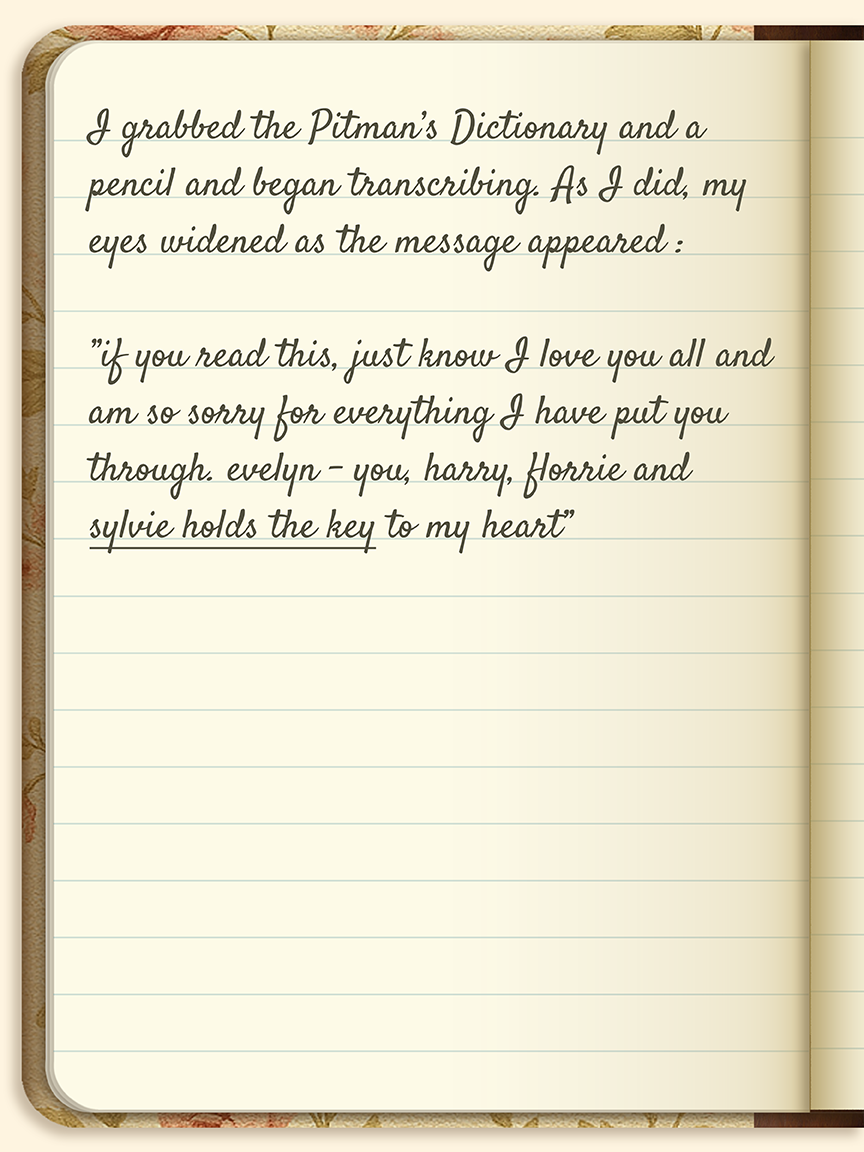 I grabbed the Pitman’s Dictionary and a
pencil and began transcribing. As I did, my
eyes widened as the message appeared :
”if you read this, just know I love you all and
am so sorry for everything I have put you
through. evelyn – you, harry, florrie and
sylvie holds the key to my heart”